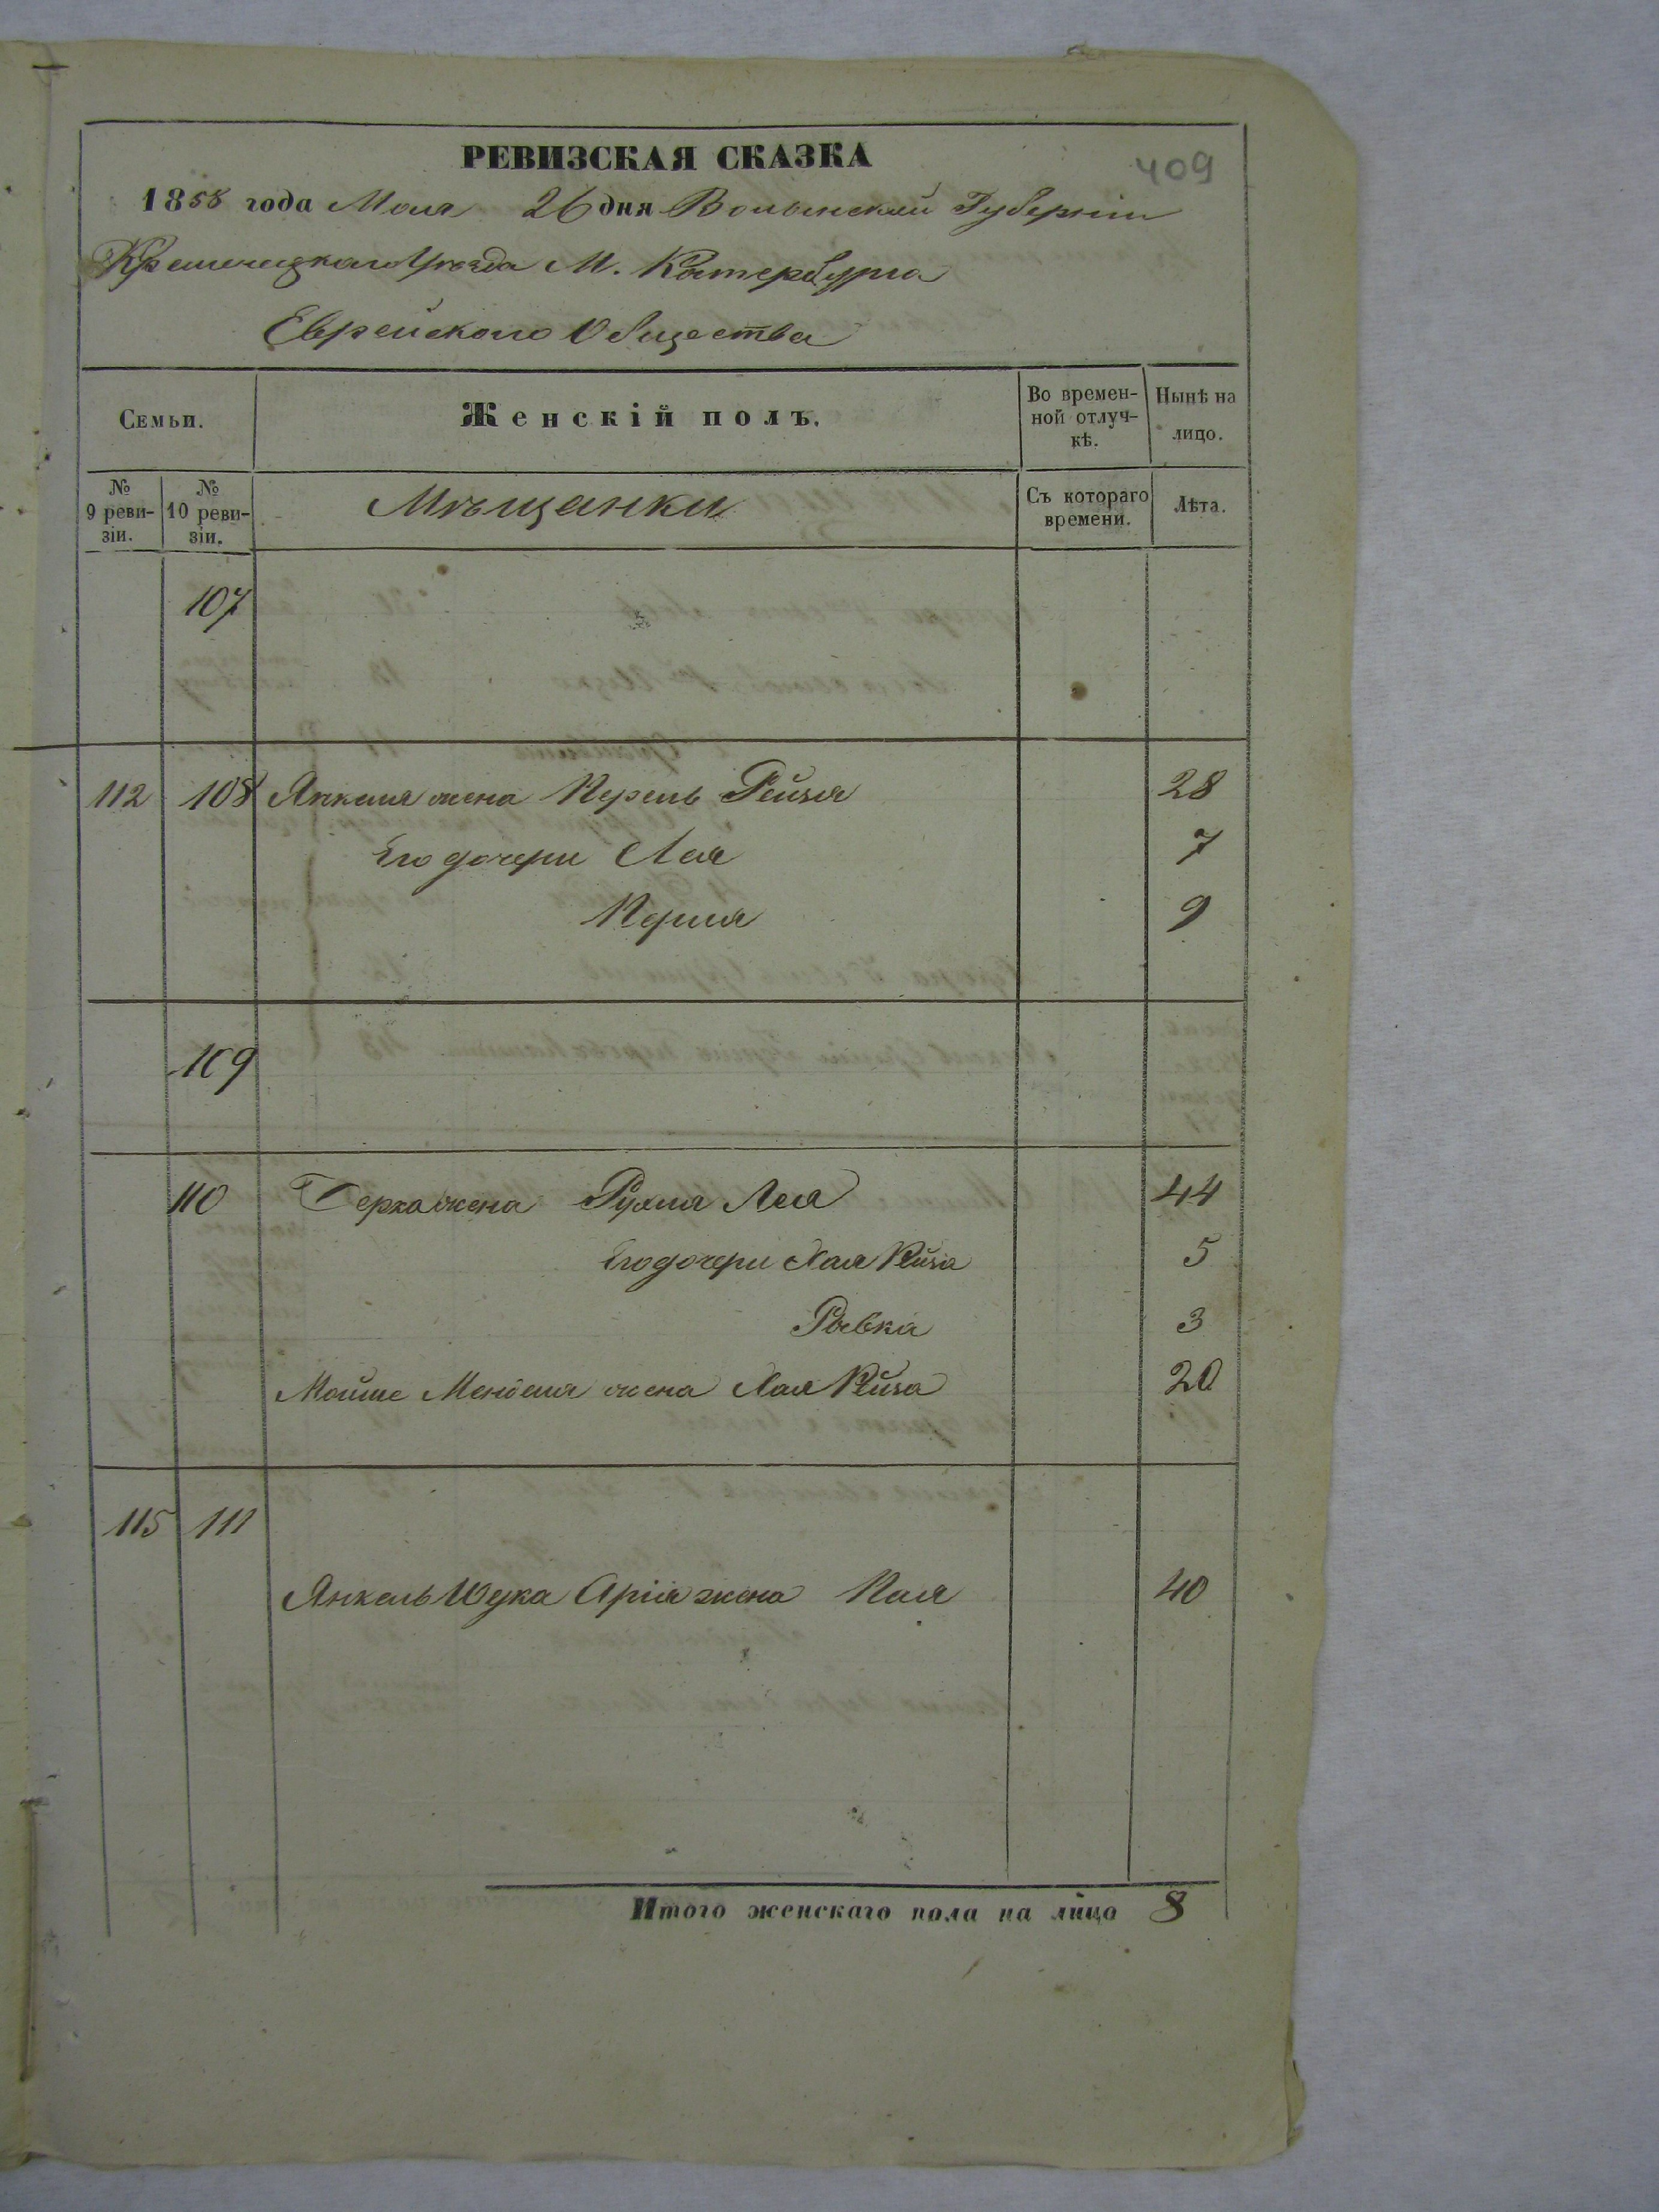 РЕВИЗСКАЯ СКАЗКА
409
1858 года Маия 26 дня Волынской Губернiи
Кременецкаго Уѣзда М. Катербурга
Еврейского Общества
Семьи.
Женскій полъ.
Во времен-
ной отлуч-
кѣ.
Нынѣ на
лицо.
№
9 реви-
зіи.
№
10 реви-
зіи.
Мѣщанки
Съ котораго
времени.
Лѣта.
107
112 108 Янкеля жена Перель Рейзя 28
Его дочери Лея 7
Перля 9
109
110 Берка жена Рухля Лея 44
Его дочери Хая Рейзя 5
Рывка 3
Мойше Менделя жена Хая Рейза 20
115 111
Янкель Юдка Арія жена 40
Итого женскаго пола на лицо 8